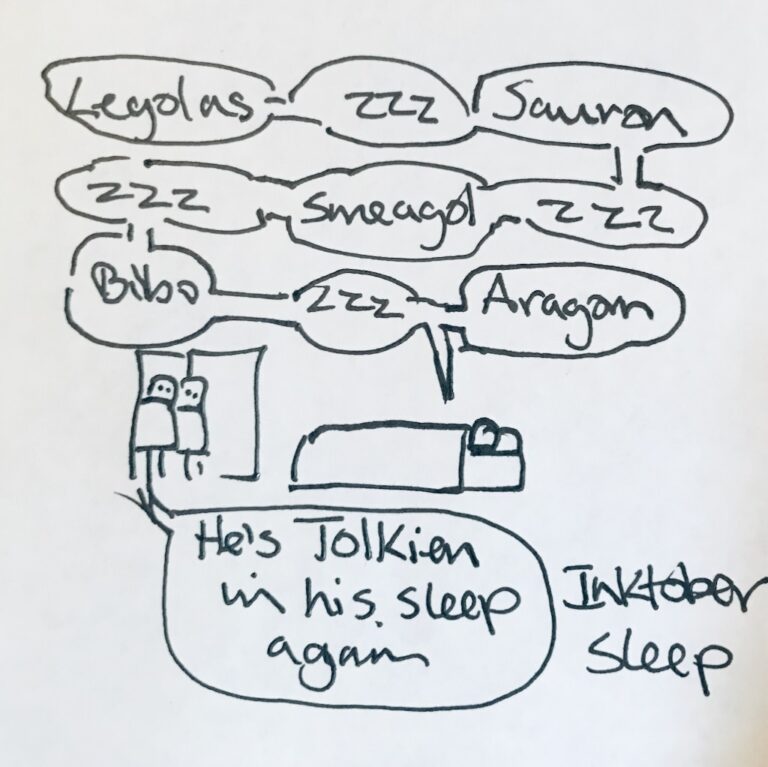 Legolas zzz Sauron
zzz Smeagol zzz
Bilbo zzz Aragorn
He's Tolkien
in his sleep
again
Inktober
sleep